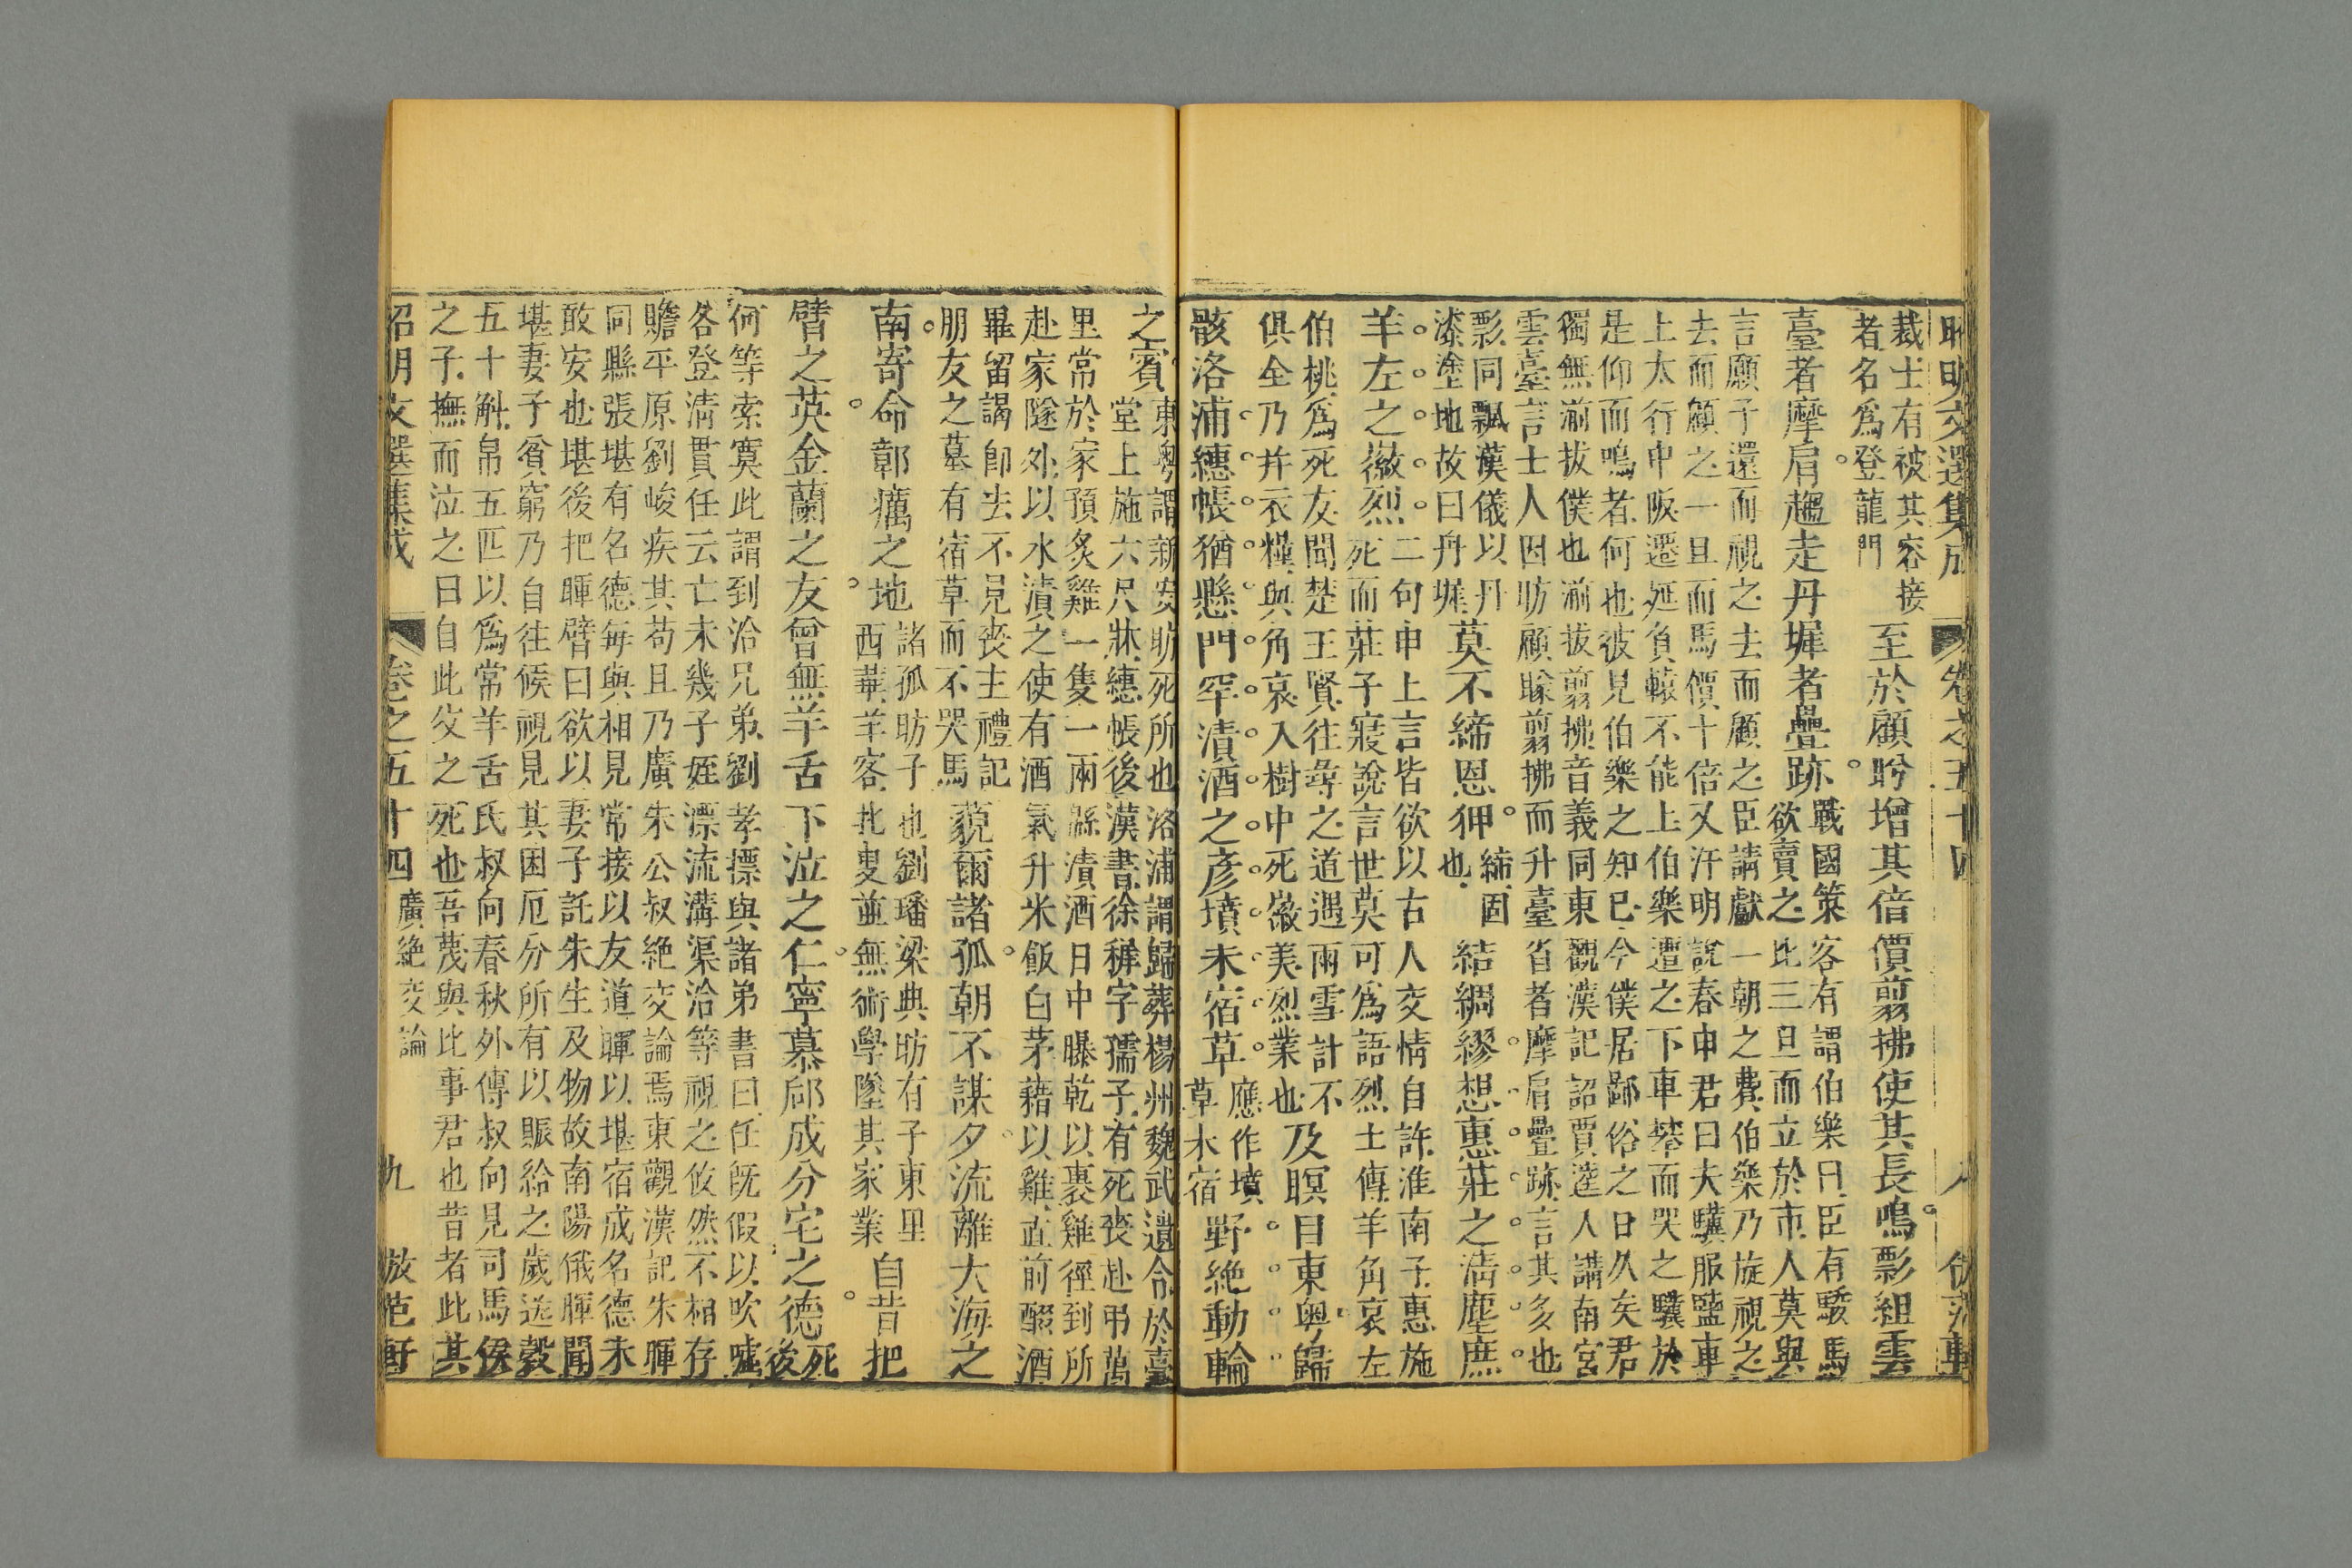 昭明文選集成 卷之五十四 八 倣范軒
裁士有被其容接
者名爲登龍門
至於顧盻增其倍價翦拂使其長鳴影組雲
臺者摩肩趨走丹墀者疊跡
戰國策客有謂伯樂曰臣有駿馬
欲賣之比三旦而立於市人莫與
言願子還而視之去而顧之臣請獻一朝之費伯樂乃旋視之
去而顧之一旦而馬價十倍又汗明說春申君曰夫驥服鹽車
上太行中阪遷延負轅不能上伯樂遭之下車攀而哭之驥於
是仰而鳴者何也彼見伯樂之知己今僕居鄙俗之日久矣君
獨無湔拔僕也湔拔翦拂音義同東觀漢記詔賈逵人講南宮
雲臺言士人因昉顧睞翦拂而升臺省者摩肩疊跡言其多也
影同飄漢儀以丹
漆塗地故曰丹墀
莫不締恩狎
締固
也
結綢繆想惠莊之淸塵庶
羊左之徽烈
二句申上言皆欲以古人交情自許淮南子惠施
死而莊子寢說言世莫可爲語烈士傳羊角哀左
伯桃爲死友聞楚王賢往尋之道遇雨雪計不
俱全乃并衣糧與角哀入樹中死徽美烈業也
及暝目東粵歸
骸洛浦繐帳猶懸門罕漬酒之彥墳未宿草
應作墳
草未宿
野絶動輪
之賓
東粵謂新安昉死所也洛浦謂歸葬楊州魏武遺令於臺
堂上施六尺牀繐帳後漢書徐穉字孺子有死喪赴弔萬
里常於家預炙雞一隻一兩緜漬酒日中曝乾以裹雞徑到所
赴家隧外以水漬之使有酒氣升米飯白茅藉以雞直前醊酒
畢留謁卽去不見喪主禮記
朋友之墓有宿草而不哭馬
藐爾諸孤朝不謀夕流離大海之
南寄命鄣癘之地
諸孤昉子也劉璠梁典昉有子東里
西華羊客北叟並無術學墜其家業
自昔把
臂之英金蘭之友曾無羊舌下泣之仁寧慕郈成分宅之德
死
後
何等索寞此謂到洽兄弟劉孝摽與諸弟書曰任旣假以吹噓
各登淸貫任云亡未幾子姪漂流溝渠洽等視之攸然不相存
贍平原劉峻疾其苟且乃廣朱公叔絶交論焉東觀漢記朱暉
同縣張堪有名德每與相見常接以友道暉以堪宿成名德未
敢安也堪後把暉臂曰欲以妻子託朱生及物故南陽俄暉聞
堪妻子貧窮乃自往候視見其困厄分所有以賑給之歲送穀
五十斛帛五匹以爲常羊舌氏叔向春秋外傳叔向見司馬侯
之子撫而泣之曰自此父之死也吾蔑與比事君也昔者此其
昭明文選集成 卷之五十四 廣絶交論 九 放范軒